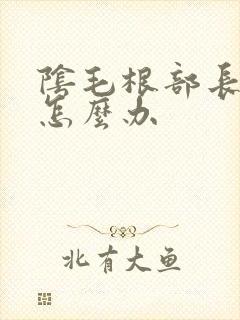 陰毛根部長
怎麼办
北有大鱼